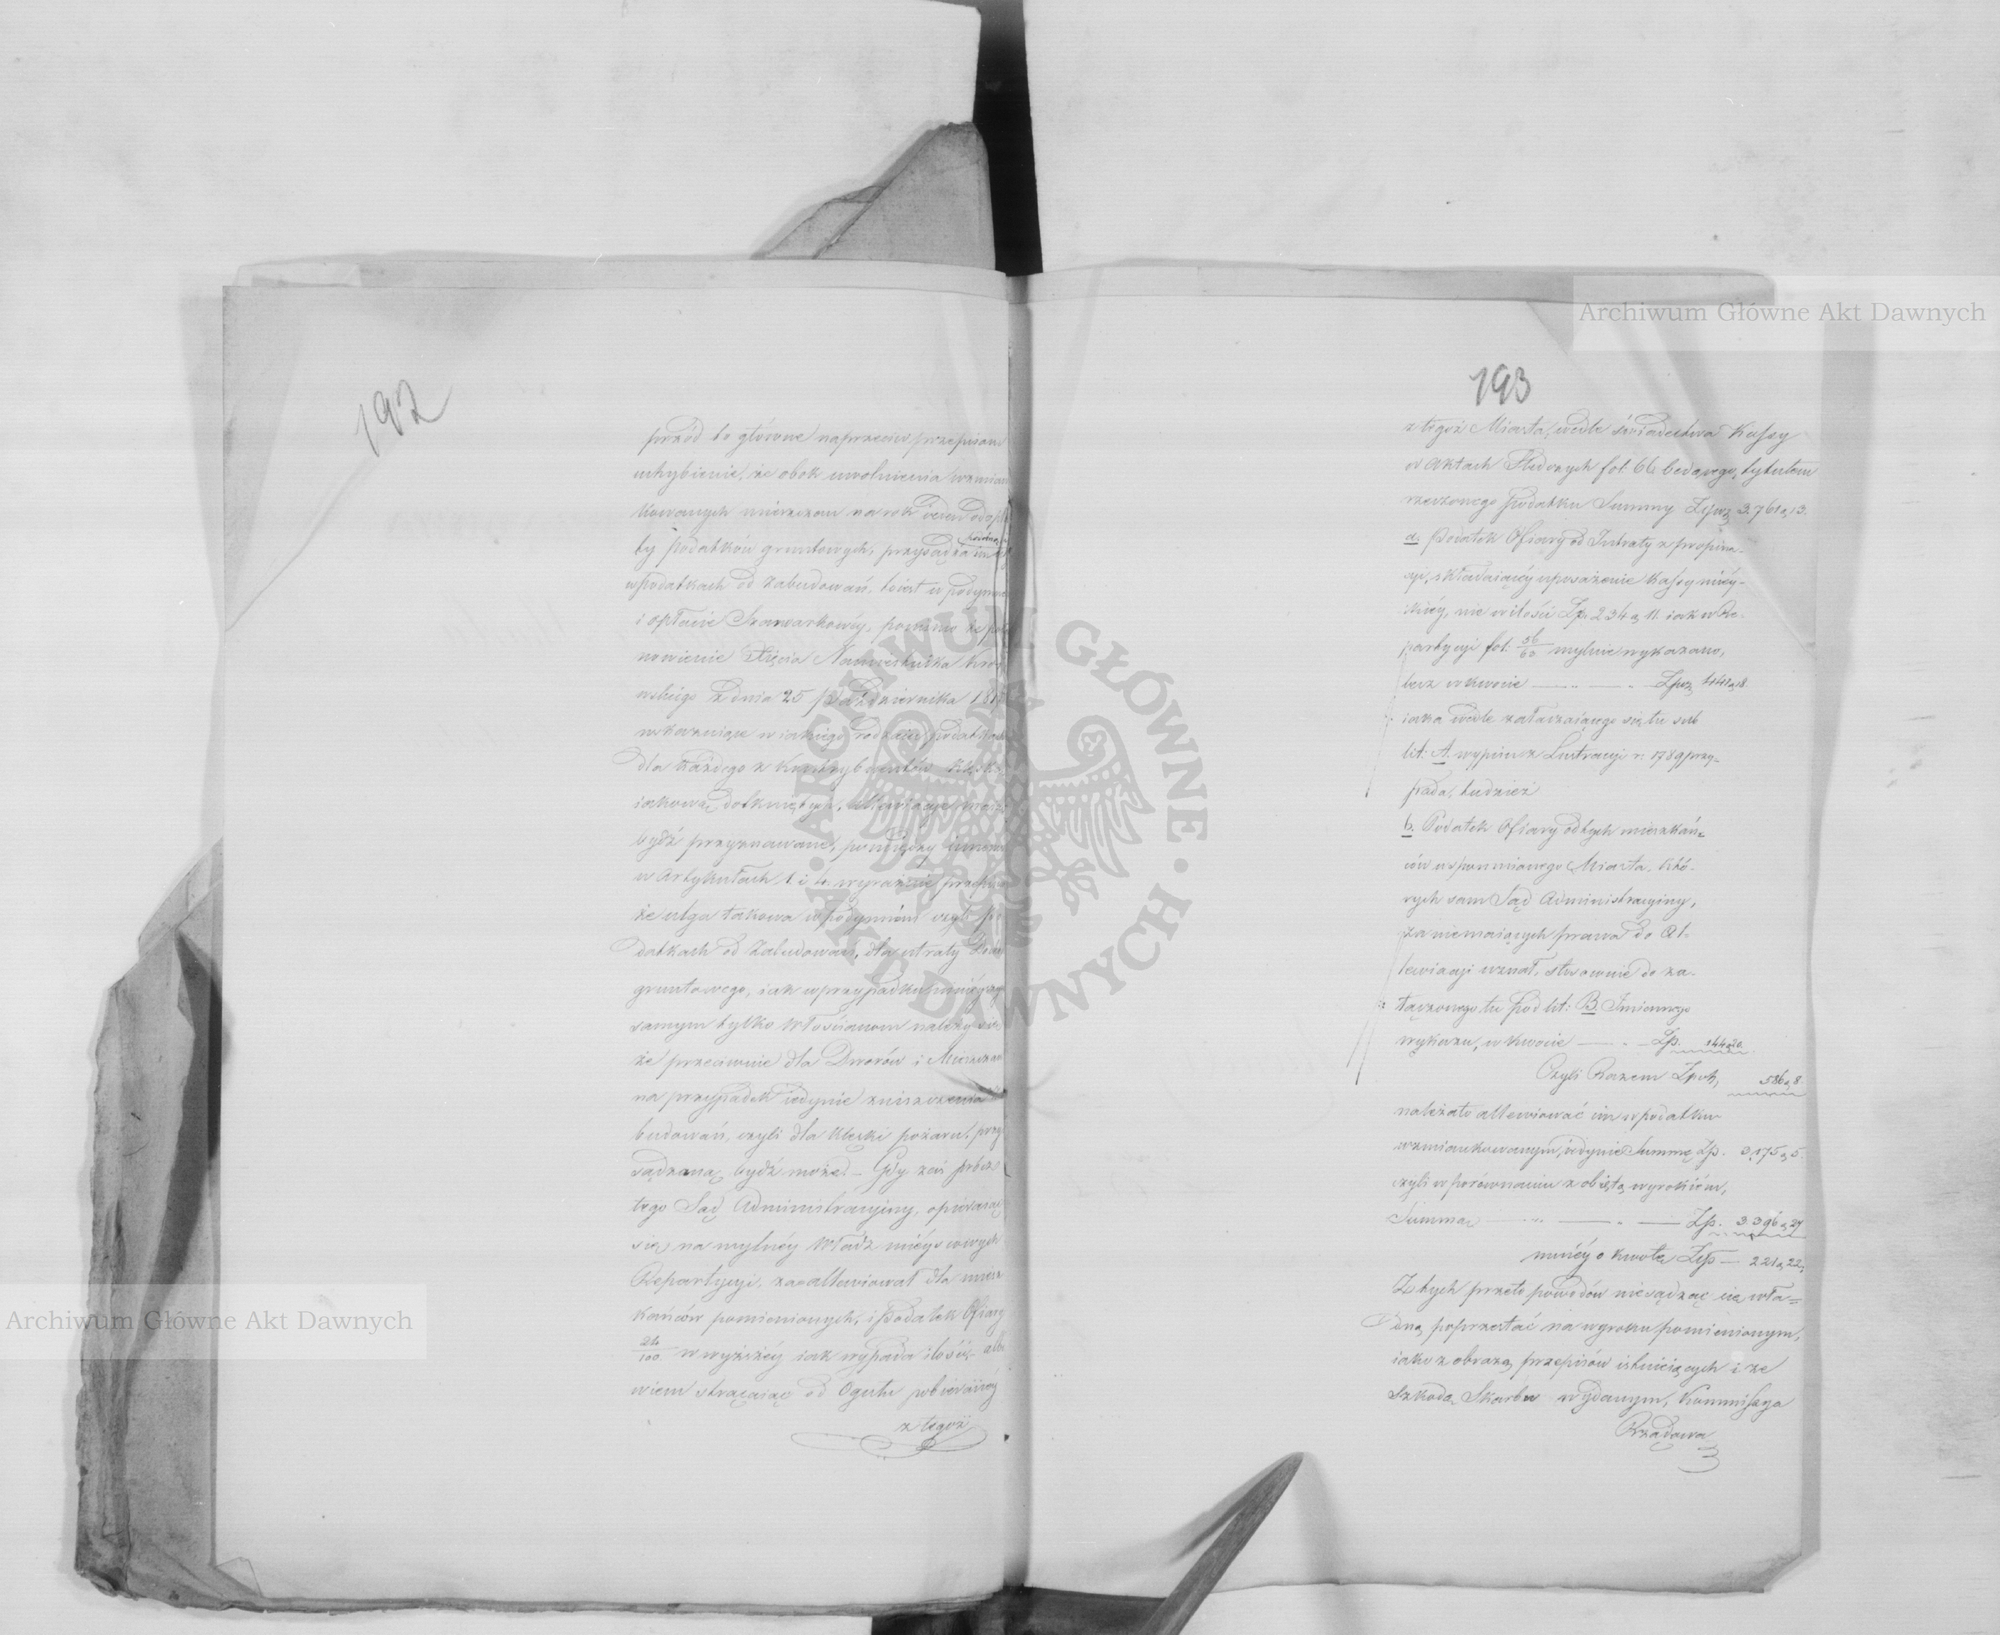 192
przód to główne naprzeciw przepisom
uchybienie, że obok uwolnienia wzmian
kowanych mieszczan na rok jeden od opła
ty podatków gruntowych, przysądza im
w podatkach od zabudowań, to iest w podymnem
i opłacie Szarwarkowéy, pomimo że posta
nowienie Xięcia Namiestnika Kró
lewskiego z dnia 25 Października 181
wskazuiące w iakiego rodzaiu podatkach
dla każdego z kontrybuentów klęską
iakową dotkniętych, allewiacye mogą
bydź przyznawane, pomiędzy innemi
w Artykułach 1. i 4. wyraźnie przepisuie
że ulga takowa w podymném czyli po
datkach od zabudowań, dla utraty
gruntowego, iak w przypadku niniéyszym
samym tylko Włościanom należy się
że przeciwnie dla Dworów i Mieszczan
na przypadek iedynie zniszczenia
budowań, czyli dla klęski pożaru, przy
sądzoną bydź może. – Gdy zaś prócz
tego Sąd Administracyiny, opieraiąc
się na mylnéy Władz mieyscowych
Repartycyi, zaallewiował dla miesz
kańców pomienionych, i podatek Ofiary
24/100 w wyższéy iak wypada ilości, albo
wiem strącaiąc od Ogułu pobieranéy
z tegoż
193
z tegoż Miasta, wedle świadectwa Kassy
w Aktach Śledczych fol: 66 będącego, tytułem
rzeczonego podatku Summy Złpoz 3.761 g 13.
a. Podatek Ofiary od Intraty z propina-
cyi, składaiącéy uposażenie Kassy miéy-
skiéy, nie w ilości Złp. 234 g 11. iak w Re-
partycyi fol: 56/60 mylnie wykazano,
lecz w kwocie — „ — „ Złpoz 441 g 18
iaka wedle załączaiącego się tu sub
lit: A. wypisu z Lustracyi r: 1789 przy-
pada, tudzież
b. Podatek Ofiary od tych mieszkań-
ców wspomnianego Miasta, któ-
rych sam Sąd Administracyiny,
za niemaiących prawa do Al-
lewiacyi uznał, stosownie do za-
łączonego tu pod lit: B Imiennego
wykazu, w kwocie — „ — Złp. 144 g 20.
Czyli Razem Złpol, 586 g 8
należało allewiować im w podatku
wzmiankowanym, iedynie Summę Złp. 3,175 g 5.
czyli w porównaniu z obiętą wyrokiem,
Summą — „ — „ — Złp. 3.396 g 27
mniéy o kwotę Złp — 221 g 22,
Z tych przeto powodów niesądząc się wła-
dną poprzestać na wyroku pomienionym,
iako z obrazą przepisów istnieiących i ze
szkodą Skarbu wydanym, Kommissya
Rządowa
Archiwum Główne Akt Dawnych
Archiwum Główne Akt Dawnych
ARCHIWUM GŁÓWNE · AKT DAWNYCH ·